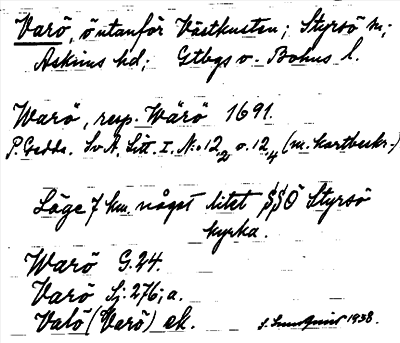 Varö, ö utanför Västkusten; Styrsö sn;
Askims hd; Gtbgs o. Bohus l.
Warö, resp. Wärö 1691.
P. Gedda. SvA, Litt. I. No 12₂ o. 12₄ (m. kartbeskr.)
Läge 7 km. något litet SSÖ Styrsö
kyrka.
Warö G.24.
Varö Sj: 276; a.
Valö (Varö) ek.
1938.